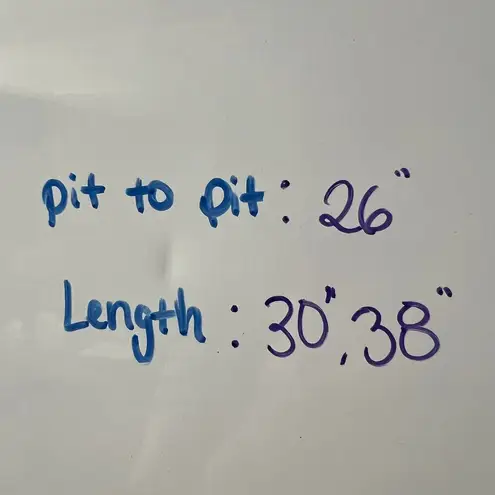 pit to pit: 26"
Length: 30", 38"